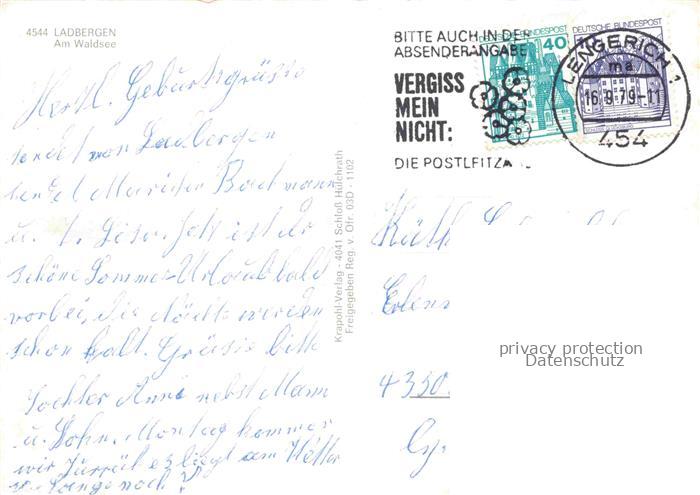 4544 LADBERGEN
Am Waldsee
Herzl. Geburtsgrüsse
sendet von Ladbergen
Bachmann
u. T. Jetz ist der
schöne Sommer-Urlaub bald
vorbei, die Nächte werden
schon kalt. Grüsse bitte
Tochter Anne nebst Mann
u. Sohn. Montag kommen
wir zurrük es liegt am Wetter
so lange noch?
Krapohl-Verlag - 4041 Schloß Hülchrath
Freigegeben Reg. v. Ofr. 03D - 1102
BITTE AUCH IN DER
ABSENDERANGABE
VERGISS
MEIN
NICHT:
DIE POSTLEITZA
DEUTSCHE BUNDESPOST
40
DEUTSCHE BUNDESPOST
LENGERICH 1
ma
16.9.79-11
454
Käth
Erlens
privacy protection
Datenschutz
4350